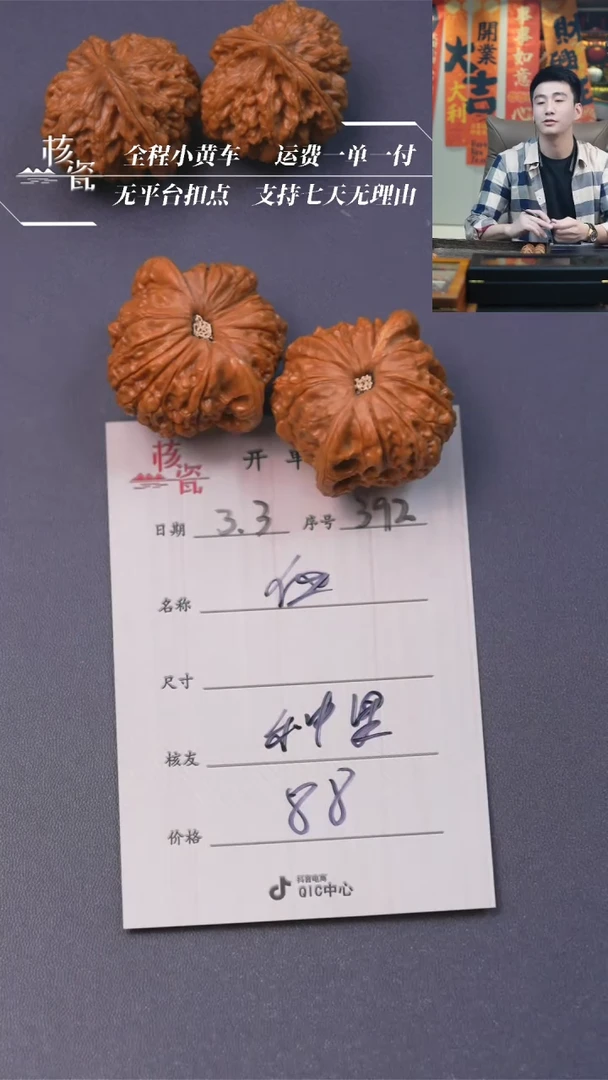 核瓷
全程小黄车 运费一单一付
无平台扣点 支持七天无理由
開業
大吉
大利
事事如意
心
財
核瓷
开单
日期 3.3 序号 392
名称
尺寸
核友
价格 88
抖音电商
QIC中心